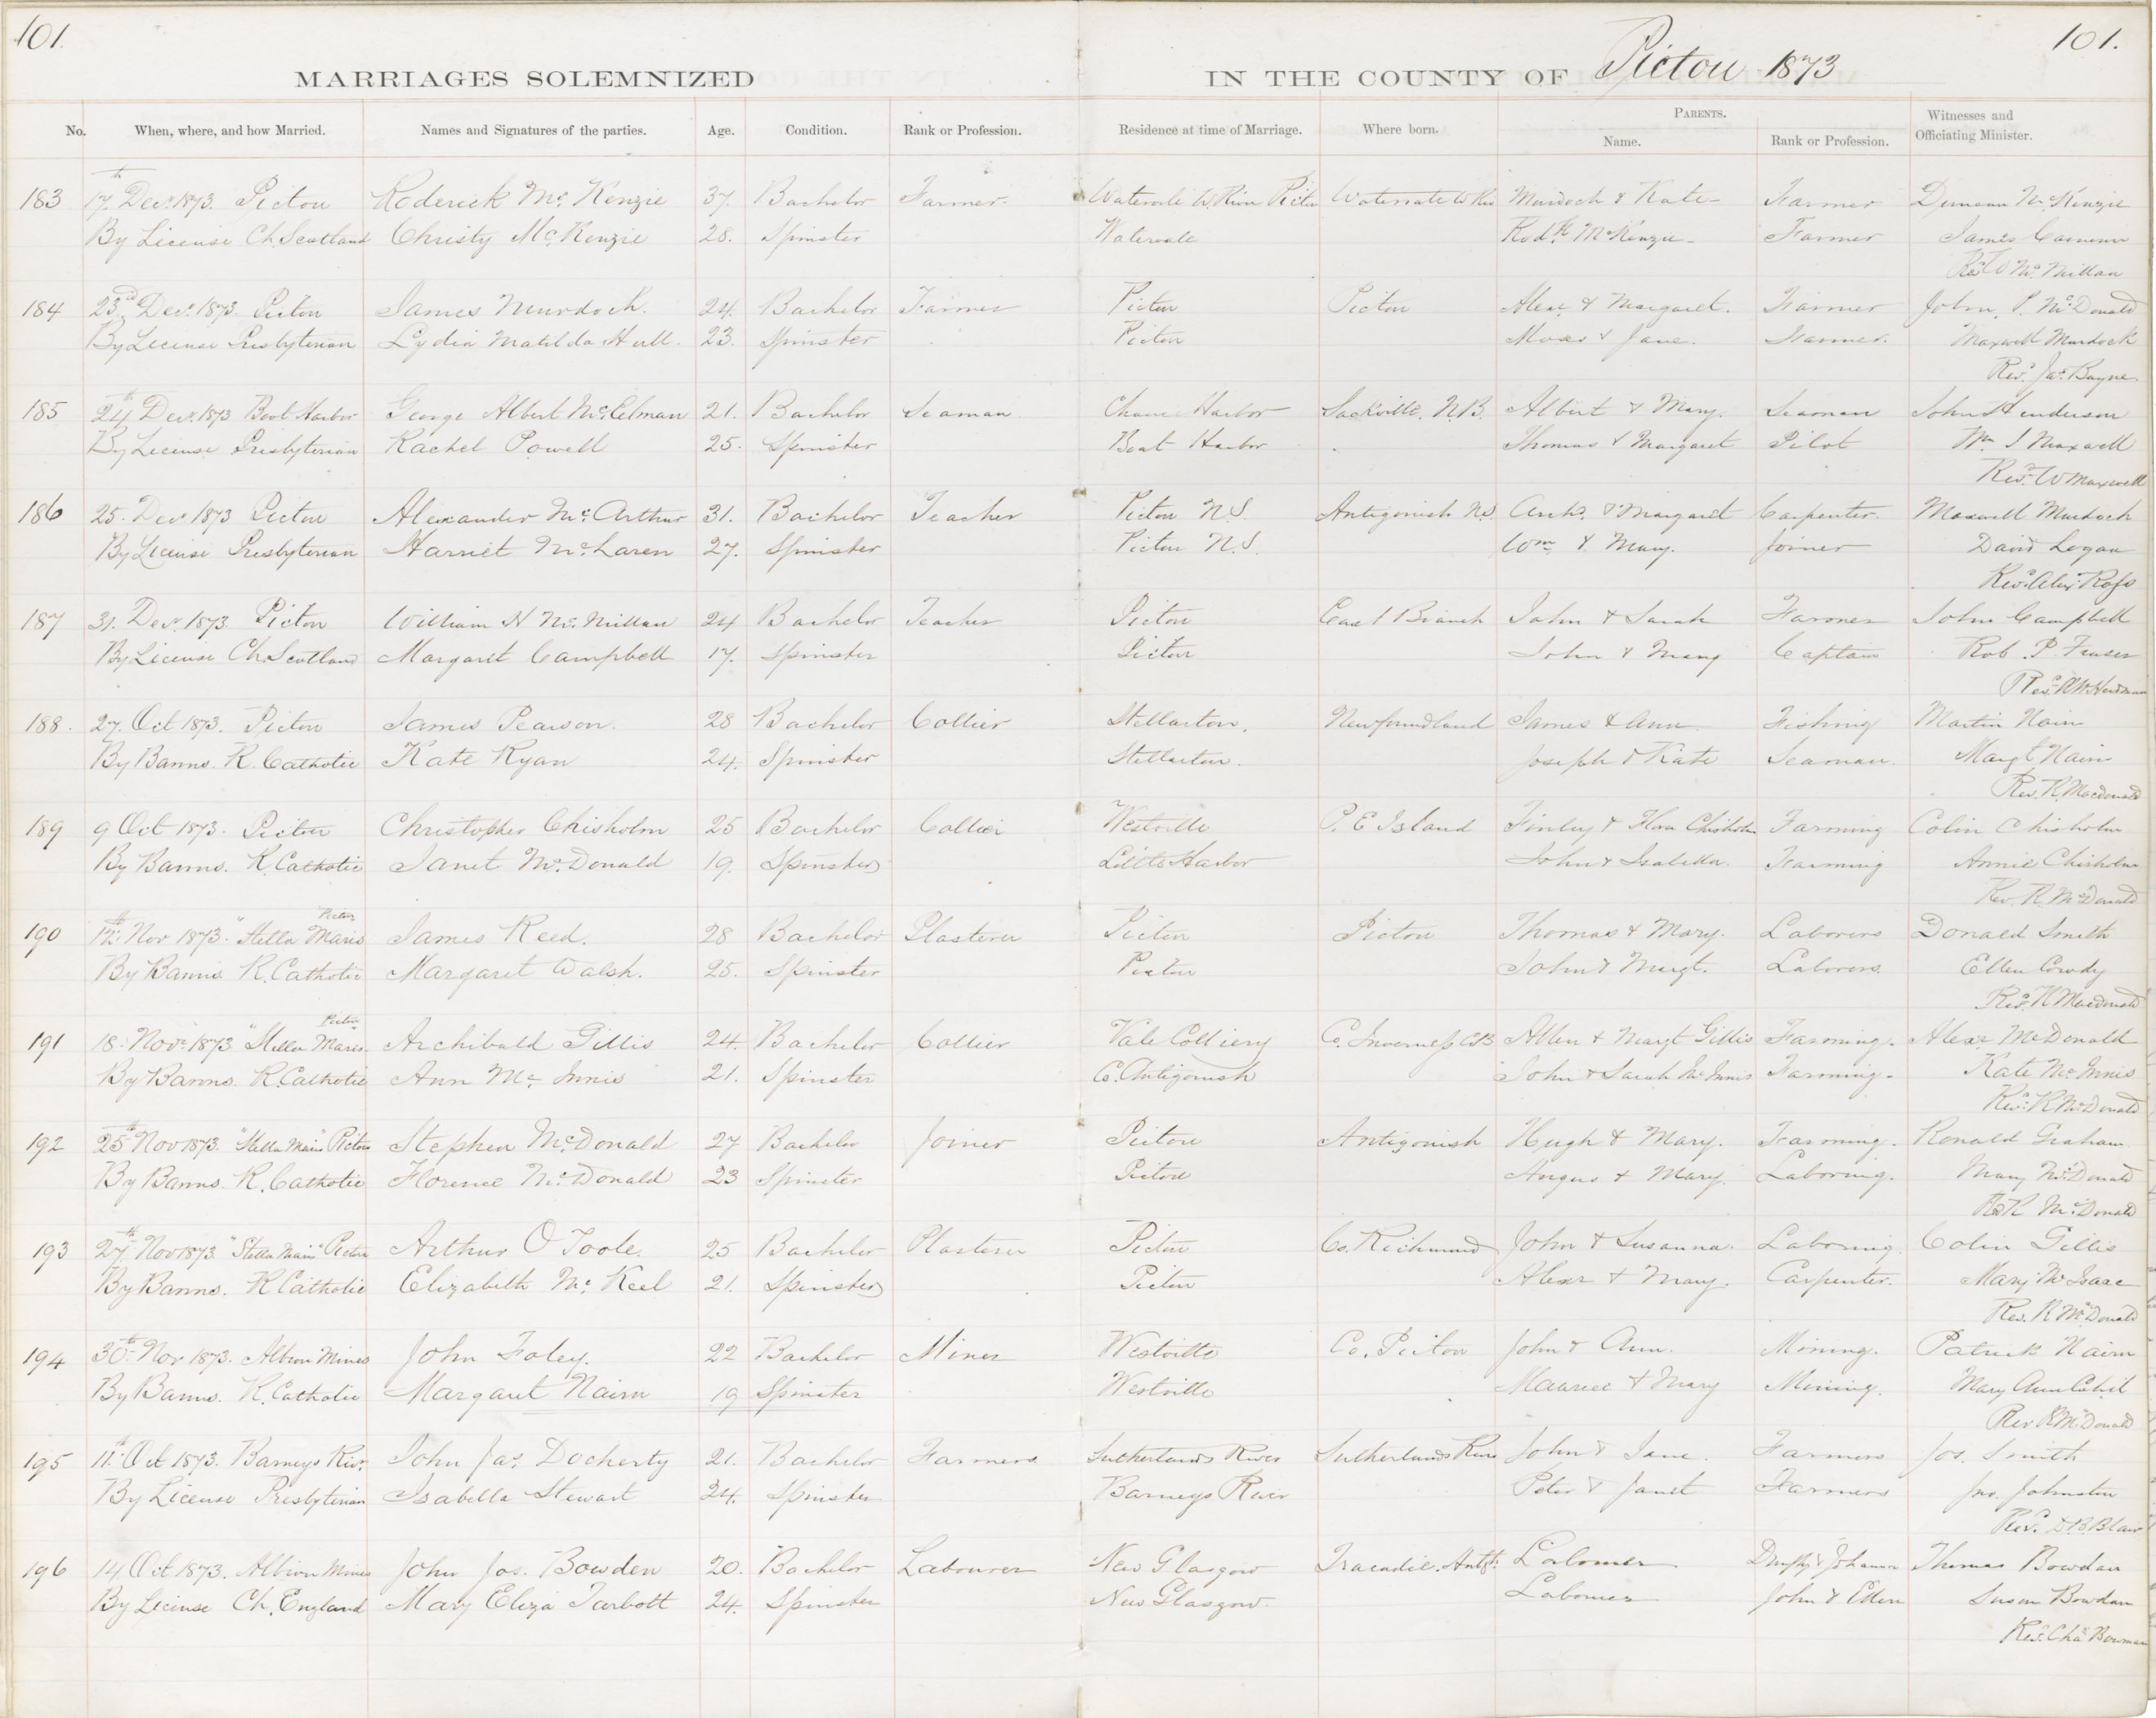 101.
101.
MARRIAGES SOLEMNIZED IN THE COUNTY OF Pictou 1873
No. When, where, and how Married. Names and Signatures of the parties. Age. Condition. Rank or Profession. Residence at time of Marriage. Where born. PARENTS. Name. Rank or Profession. Witnesses and Officiating Minister.
183 17th Decr. 1873. Pictou Roderick Mc. Kenzie 37. Bachelor Farmer. Watervale W. River Pictou Watervale W Riv Murdoch & Kate Farmer Duncan McKenzie
By License Ch. Scotland Christy McKenzie 28. Spinster Watervale Rodk. McKenzie Farmer James Cameron
Revd. W McMillan
184 23rd Decr. 1873. Pictou James Murdoch. 24. Bachelor Farmer Pictou Pictou Alexr. & Margaret. Farmer John. P. McDonald
By License Presbyterian Lydia Matilda Hull. 23. Spinster Pictou Moses & Jane. Farmer. Maxwell Murdock
Revd. Jas. Bayne.
185 24th Decr. 1873 Boat Harbor George Albert McCelman 21. Bachelor Seaman Chance Harbor Sackville. N.B. Albert & Mary. Seaman John Henderson
By License Presbyterian Rachel Powell 25. Spinster Boat Harbor Thomas & Margaret Pilot Wm. J Maxwell
Revd. W Maxwell
186 25. Decr. 1873 Pictou Alexander McArthur 31. Bachelor Teacher Pictou N.S. Antigonish N.S Arch. & Margaret Carpenter. Maxwell Murdoch
By License Presbyterian Harriet McLaren 27. Spinster Pictou N.S. Wm. & Mary. Joiner David Logan
Revd. Alexr. Ross
187 31. Decr. 1873. Pictou William H McMillan 24 Bachelor Teacher Pictou East Branch John & Sarah Farmer John Campbell
By License Ch. Scotland Margaret Campbell 17. Spinster Pictou John & Mary Captain Rob. P. Fraser
Revd. A W. Herdman
188. 27. Oct 1873. Pictou James Pearson. 28 Bachelor Collier Stellarton. Newfoundland James & Ann Fishing Martin Nairn
By Banns. R. Catholic Kate Ryan 24. Spinster Stellarton. Joseph & Kate Seaman. Margt Nairn
Rev. R. Macdonald
189 9 Oct 1873. Pictou Christopher Chisholm 25 Bachelor Collier Westville P. E Island Finley & Flora Chisholm Farming Colin Chisholm
By Banns. R. Catholic Janet McDonald 19. Spinster Little Harbor John & Isabella. Farming Annie Chisholm
Rev. R. McDonald
Pictou
190 12th Nov 1873. "Stella Maris James Reed. 28 Bachelor Plasterer Pictou Pictou Thomas & Mary. Laborers Donald Smith
By Banns R. Catholic Margaret Walsh. 25. Spinster Pictou John & Margt. Laborers. Ellen Cowdy
Revd. R Macdonald
Pictou
191 18. Novr. 1873 "Stella Maris. Archibald Gillis 24. Bachelor Collier Vale Colliery Co. Inverness CB Allen & Margt Gillis Farming. Alexr McDonald
By Banns. R. Catholic Ann McInnis 21. Spinster Co. Antigonish John & Sarah McInnis Farming. Kate McInnis
Revd. R McDonald
192 25th Nov 1873. "Stella Maris" Pictou Stephen McDonald 27 Bachelor Joiner Pictou Antigonish Hugh & Mary. Farming. Ronald Graham
By Banns. R. Catholic Florence McDonald 23 Spinster Pictou Angus & Mary. Laboring. Mary McDonald
Rev R McDonald
193 27th Nov 1873. "Stella Maris" Pictou Arthur O Toole. 25 Bachelor Plasterer Pictou Co. Richmond John & Susanna. Laboring. Colin Gillis
By Banns. R Catholic Elizabeth Mc. Keel 21. Spinster Pictou Alexr & Mary. Carpenter. Mary McIsaac
Rev. R McDonald
194 30th Nov 1873. Albion Mines John Foley. 22 Bachelor Miner Westville Co. Pictou John & Ann. Mining. Patrick Nairn
By Banns. R. Catholic Margaret Nairn 19 Spinster Westville Maurice & Mary Mining. Mary Ann Cahil
Rev R McDonald
195 11th Oct 1873. Barneys Rivr. John Jas. Docherty 21. Bachelor Farmers Sutherlands River Sutherlands River John & Jane. Farmers Jos. Smith
By License Presbyterian Isabella Stewart 24. Spinster Barneys River Peter & Janet Farmers Jno. Johnston
Revd. D. B. Blair
196 14 Oct 1873. Albion Mines John Jos. Bowden 20. Bachelor Labourer New Glasgow Tracadie. Antgt. Labourer & Johanna Thomas Bowdan
By License Ch. England Mary Eliza Tarbott 24. Spinster New Glasgow. Labourer John & Ellen Susan Bowdan
Revd. Chas Bowman